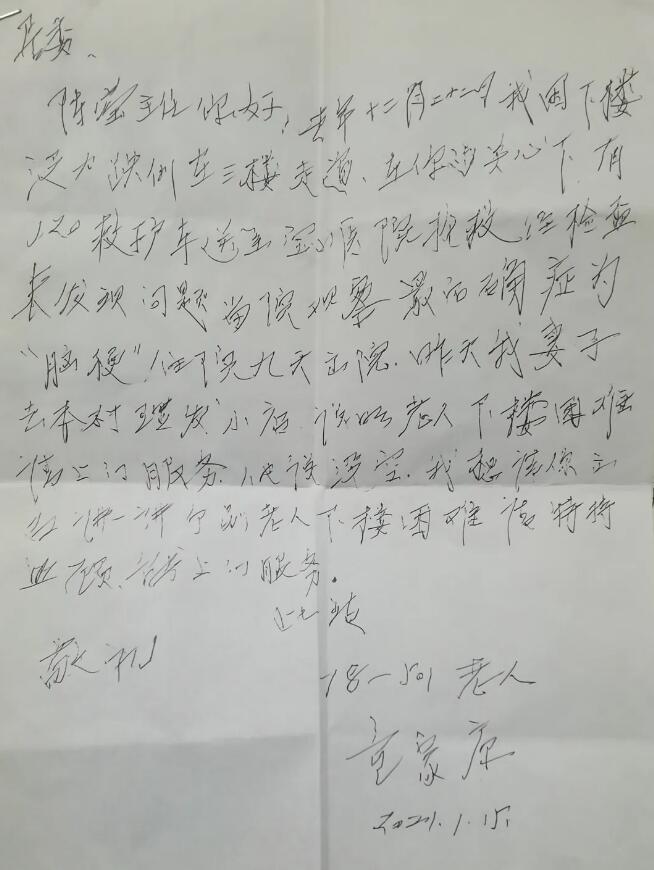 居委、
陈莹主任你好！去年十二月二十一日我因下楼
没力跌倒在三楼走道、在你的关心下、有
120救护车送至医院抢救经检查
未发现问题留院观察最后确症为
“脑梗”住院九天出院．昨天我妻子
去本村理发小店．说明老人下楼困难
请上门服务．他说没空．我想请你出
面讲一讲个别老人下楼困难请特将
照顾．请上门服务．
此致
敬礼
78-501老人
童家康
2021.1.15.